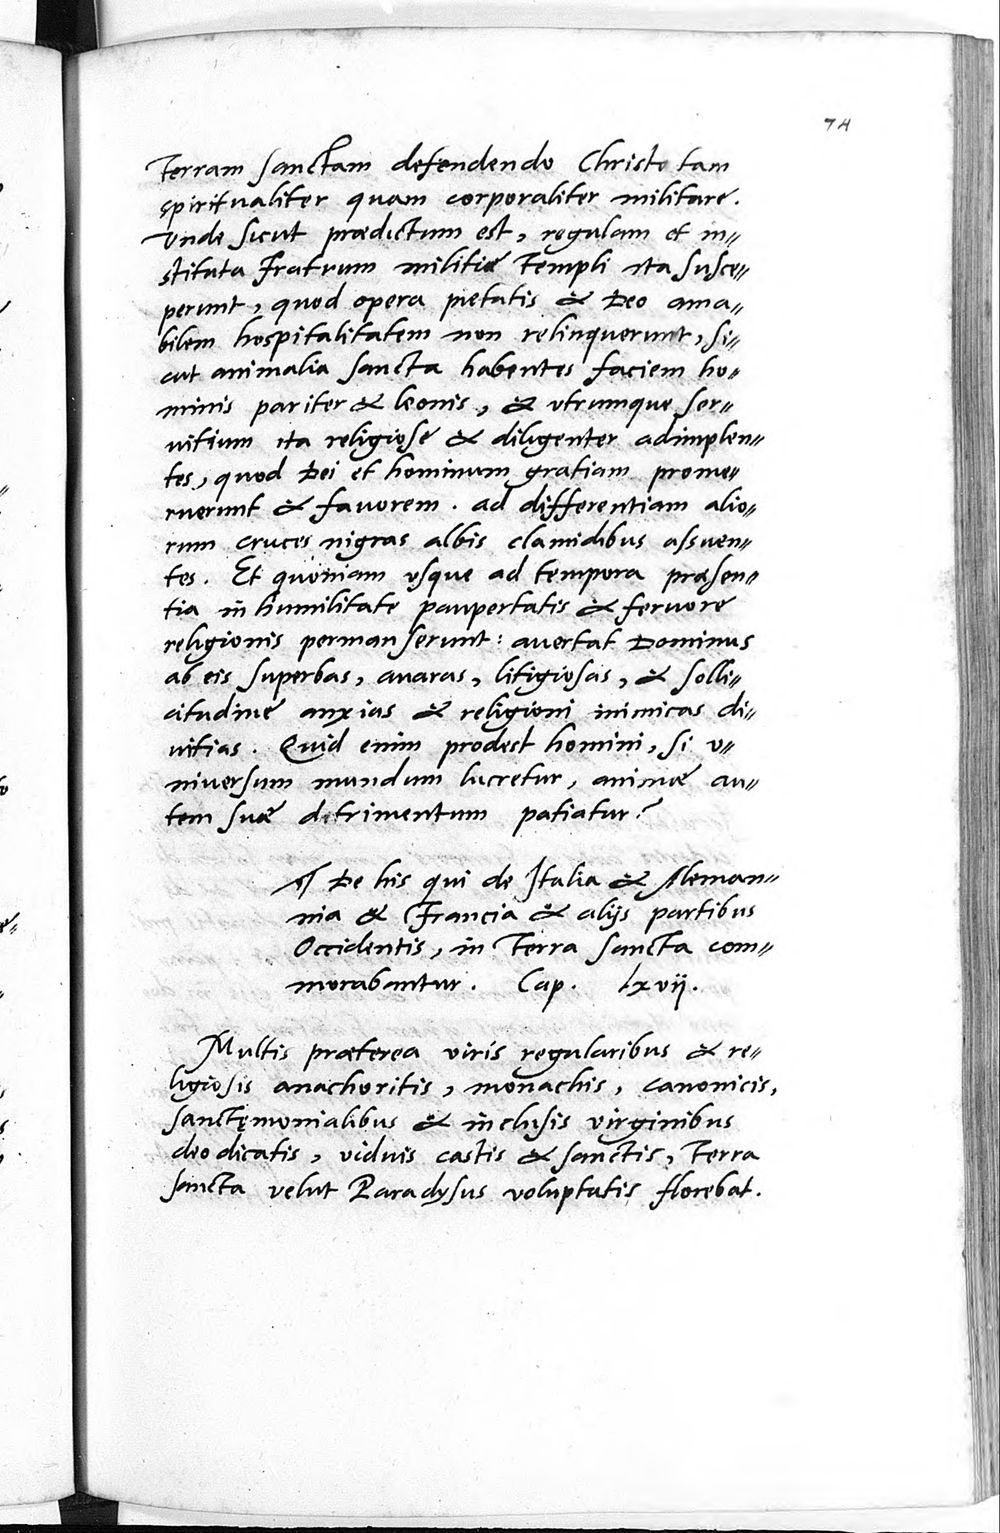 74
Terram sanctam defendendo Christo tam
spiritualiter quam corporaliter militare.
Vnde sicut prædictum est, regulam et in//
stituta Fratrum militiæ Templi ita susce//
perunt, quod opera pietatis & Deo ama//
bilem hospitalitatem non relinquerunt, si//
cut animalia sancta habentes faciem ho//
minis pariter & leonis, & vtrumque ser//
vitium ita religiosè & diligenter adimplen//
tes, quod Dei et hominum gratiam prome//
ruerunt & favorem. ad differentiam alio//
rum cruces nigras albis clamidibus assuen//
tes. Et quoniam vsque ad tempora præsen//
tia in humilitate paupertatis & fervore
religionis permanserunt: avertat Dominus
ab eis superbas, avaras, litigiosas, & solli//
citudine anxias & religioni inimicas di//
vitias. Quid enim prodest homini, si v//
niversum mundum lucretur, animæ au//
tem suæ detrimentum patiatur?
¶ De his qui de Italia & Aleman//
nia & Francia & alijs partibus
Occidentis, in Terra Sancta com//
morabantur. Cap. lxvij.
Multis præterea viris regularibus & re//
ligiosis anachoritis, monachis, canonicis,
sanctęmonialibus & inclusis virginibus
deo dicatis, viduis castis & sanctis, Terra
sancta velut Paradysus voluptatis florebat.